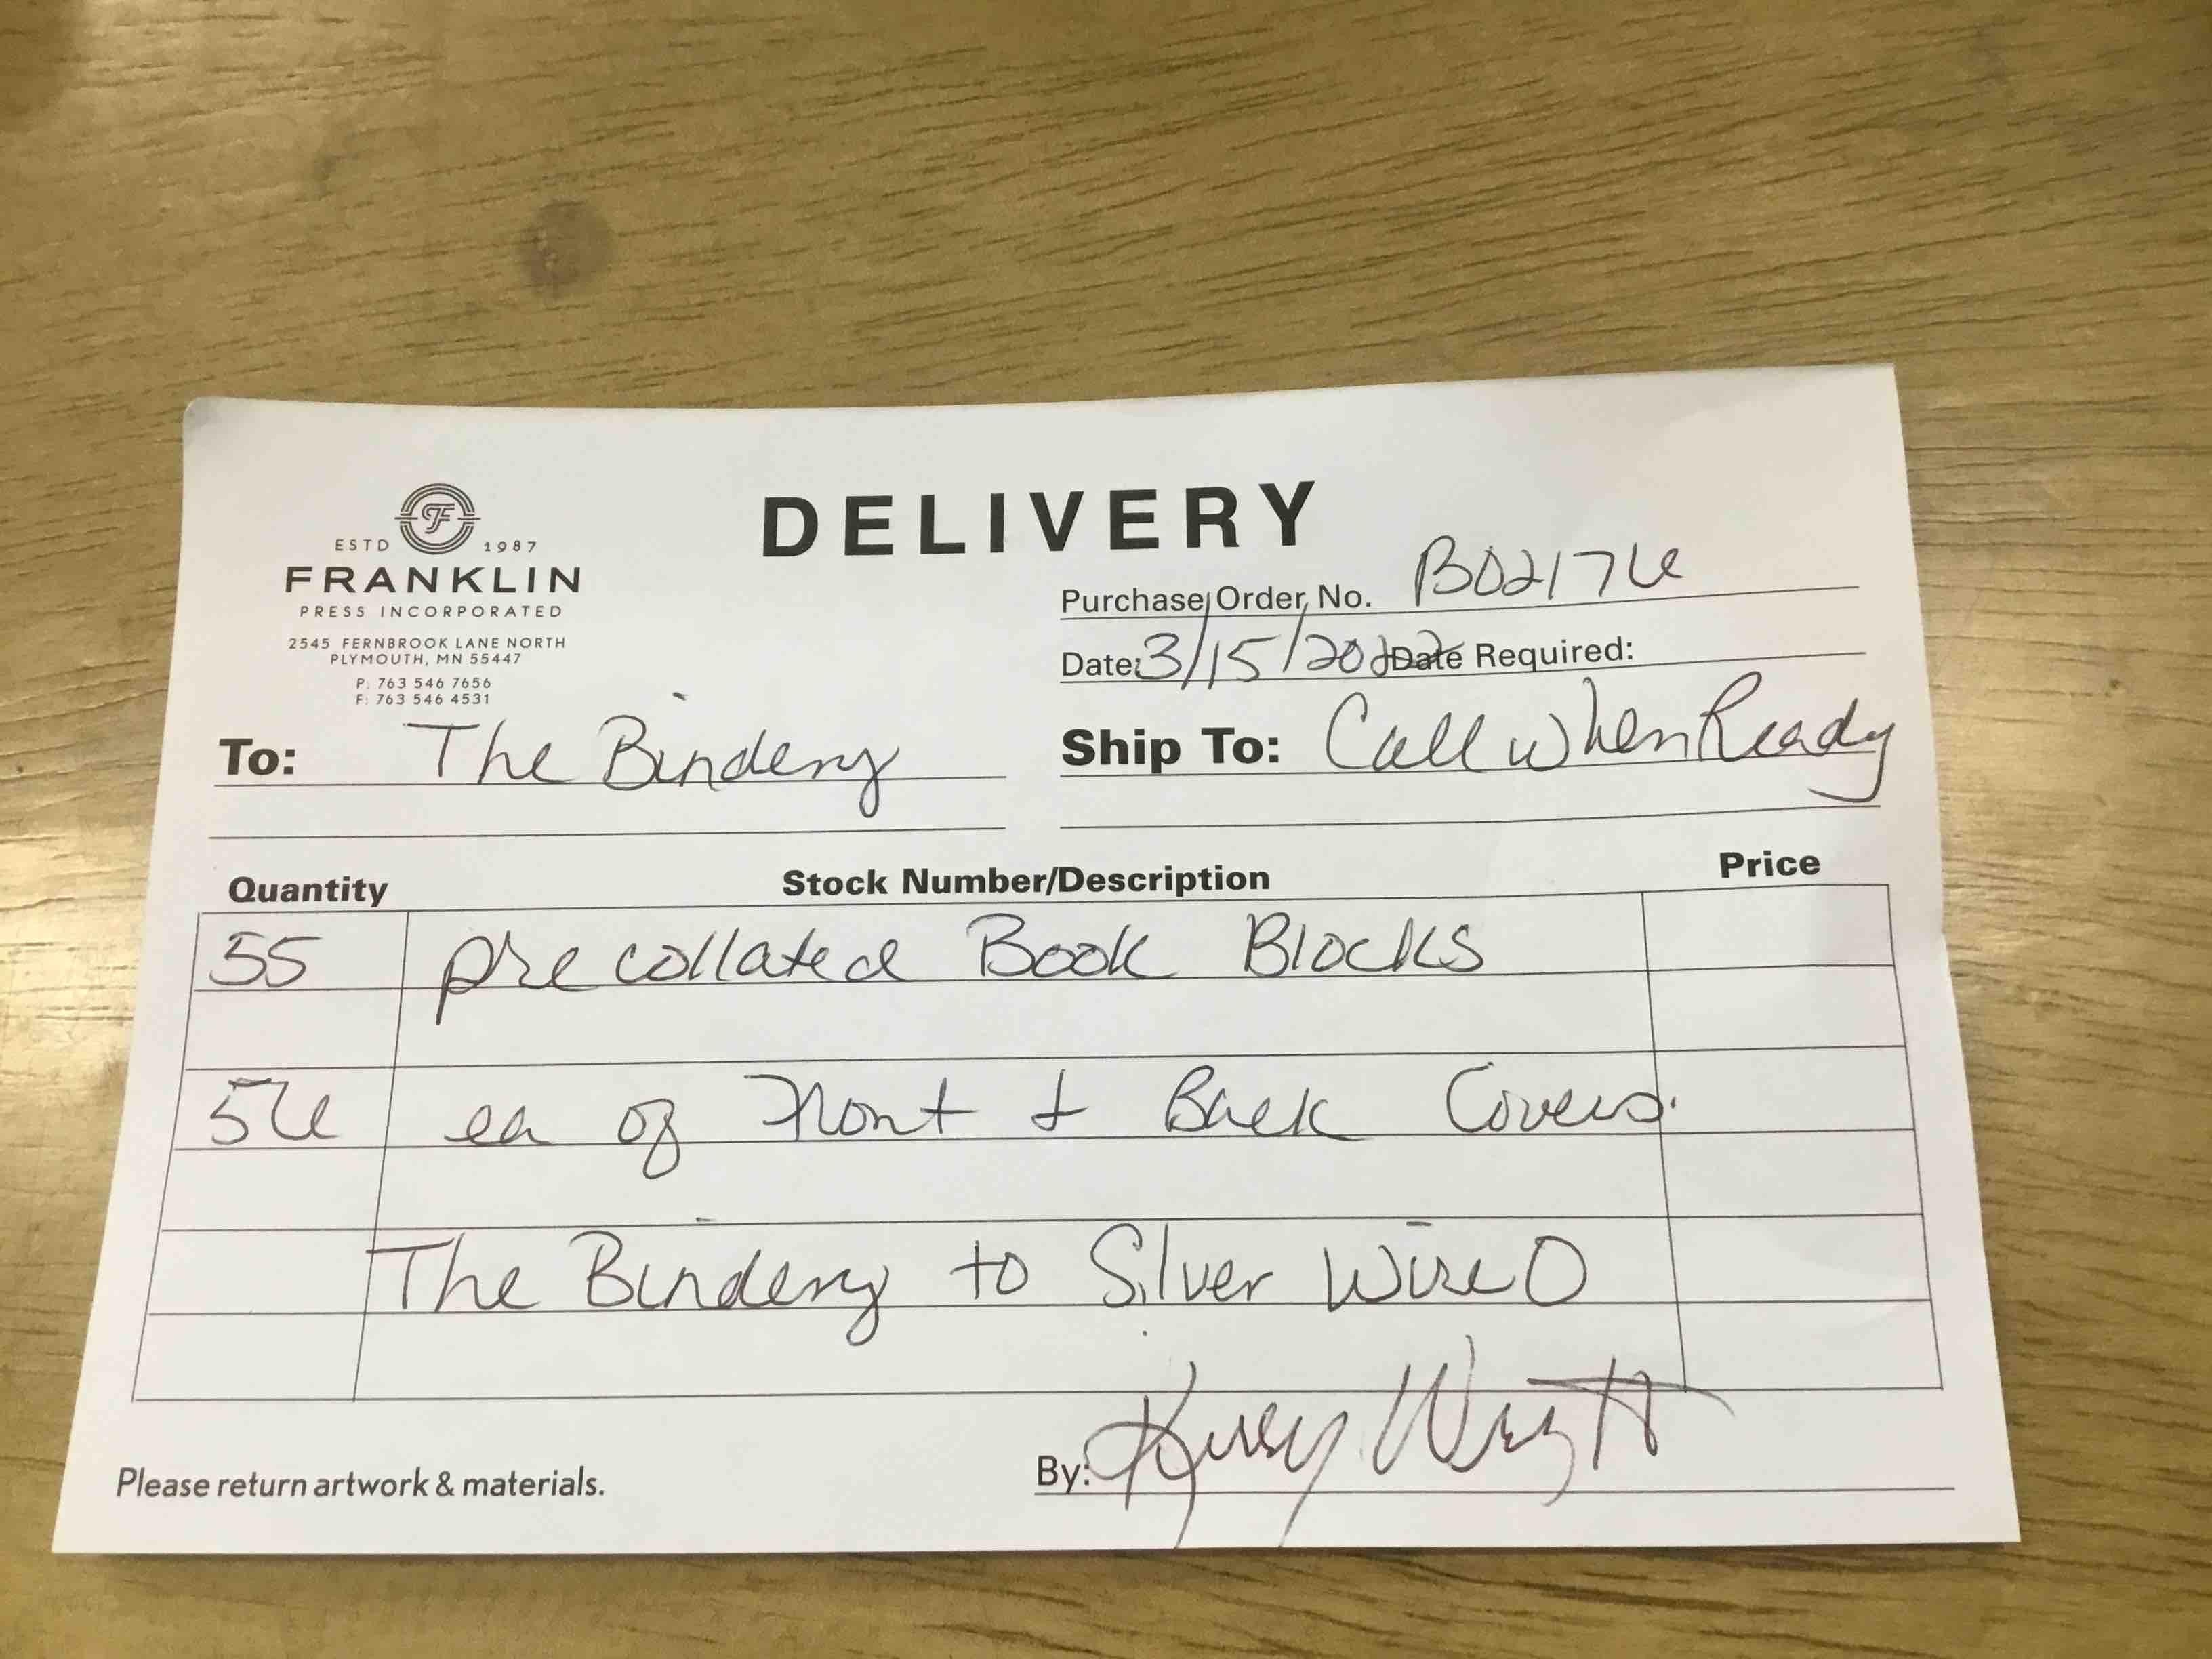 DELIVERY
ESTD 1987
FRANKLIN
PRESS INCORPORATED
2545 FERNBROOK LANE NORTH
PLYMOUTH, MN 55447
P: 763 546 7656
F: 763 546 4531
Purchase Order No. B02176
Date: 3/15/2022 Date Required:
To: The Bindery
Ship To: Call when Ready
Quantity Stock Number/Description Price
55 pre collated Book Blocks
56 ea of Front & Back Covers.
The Bindery to Silver Wire O
Please return artwork & materials.
By: